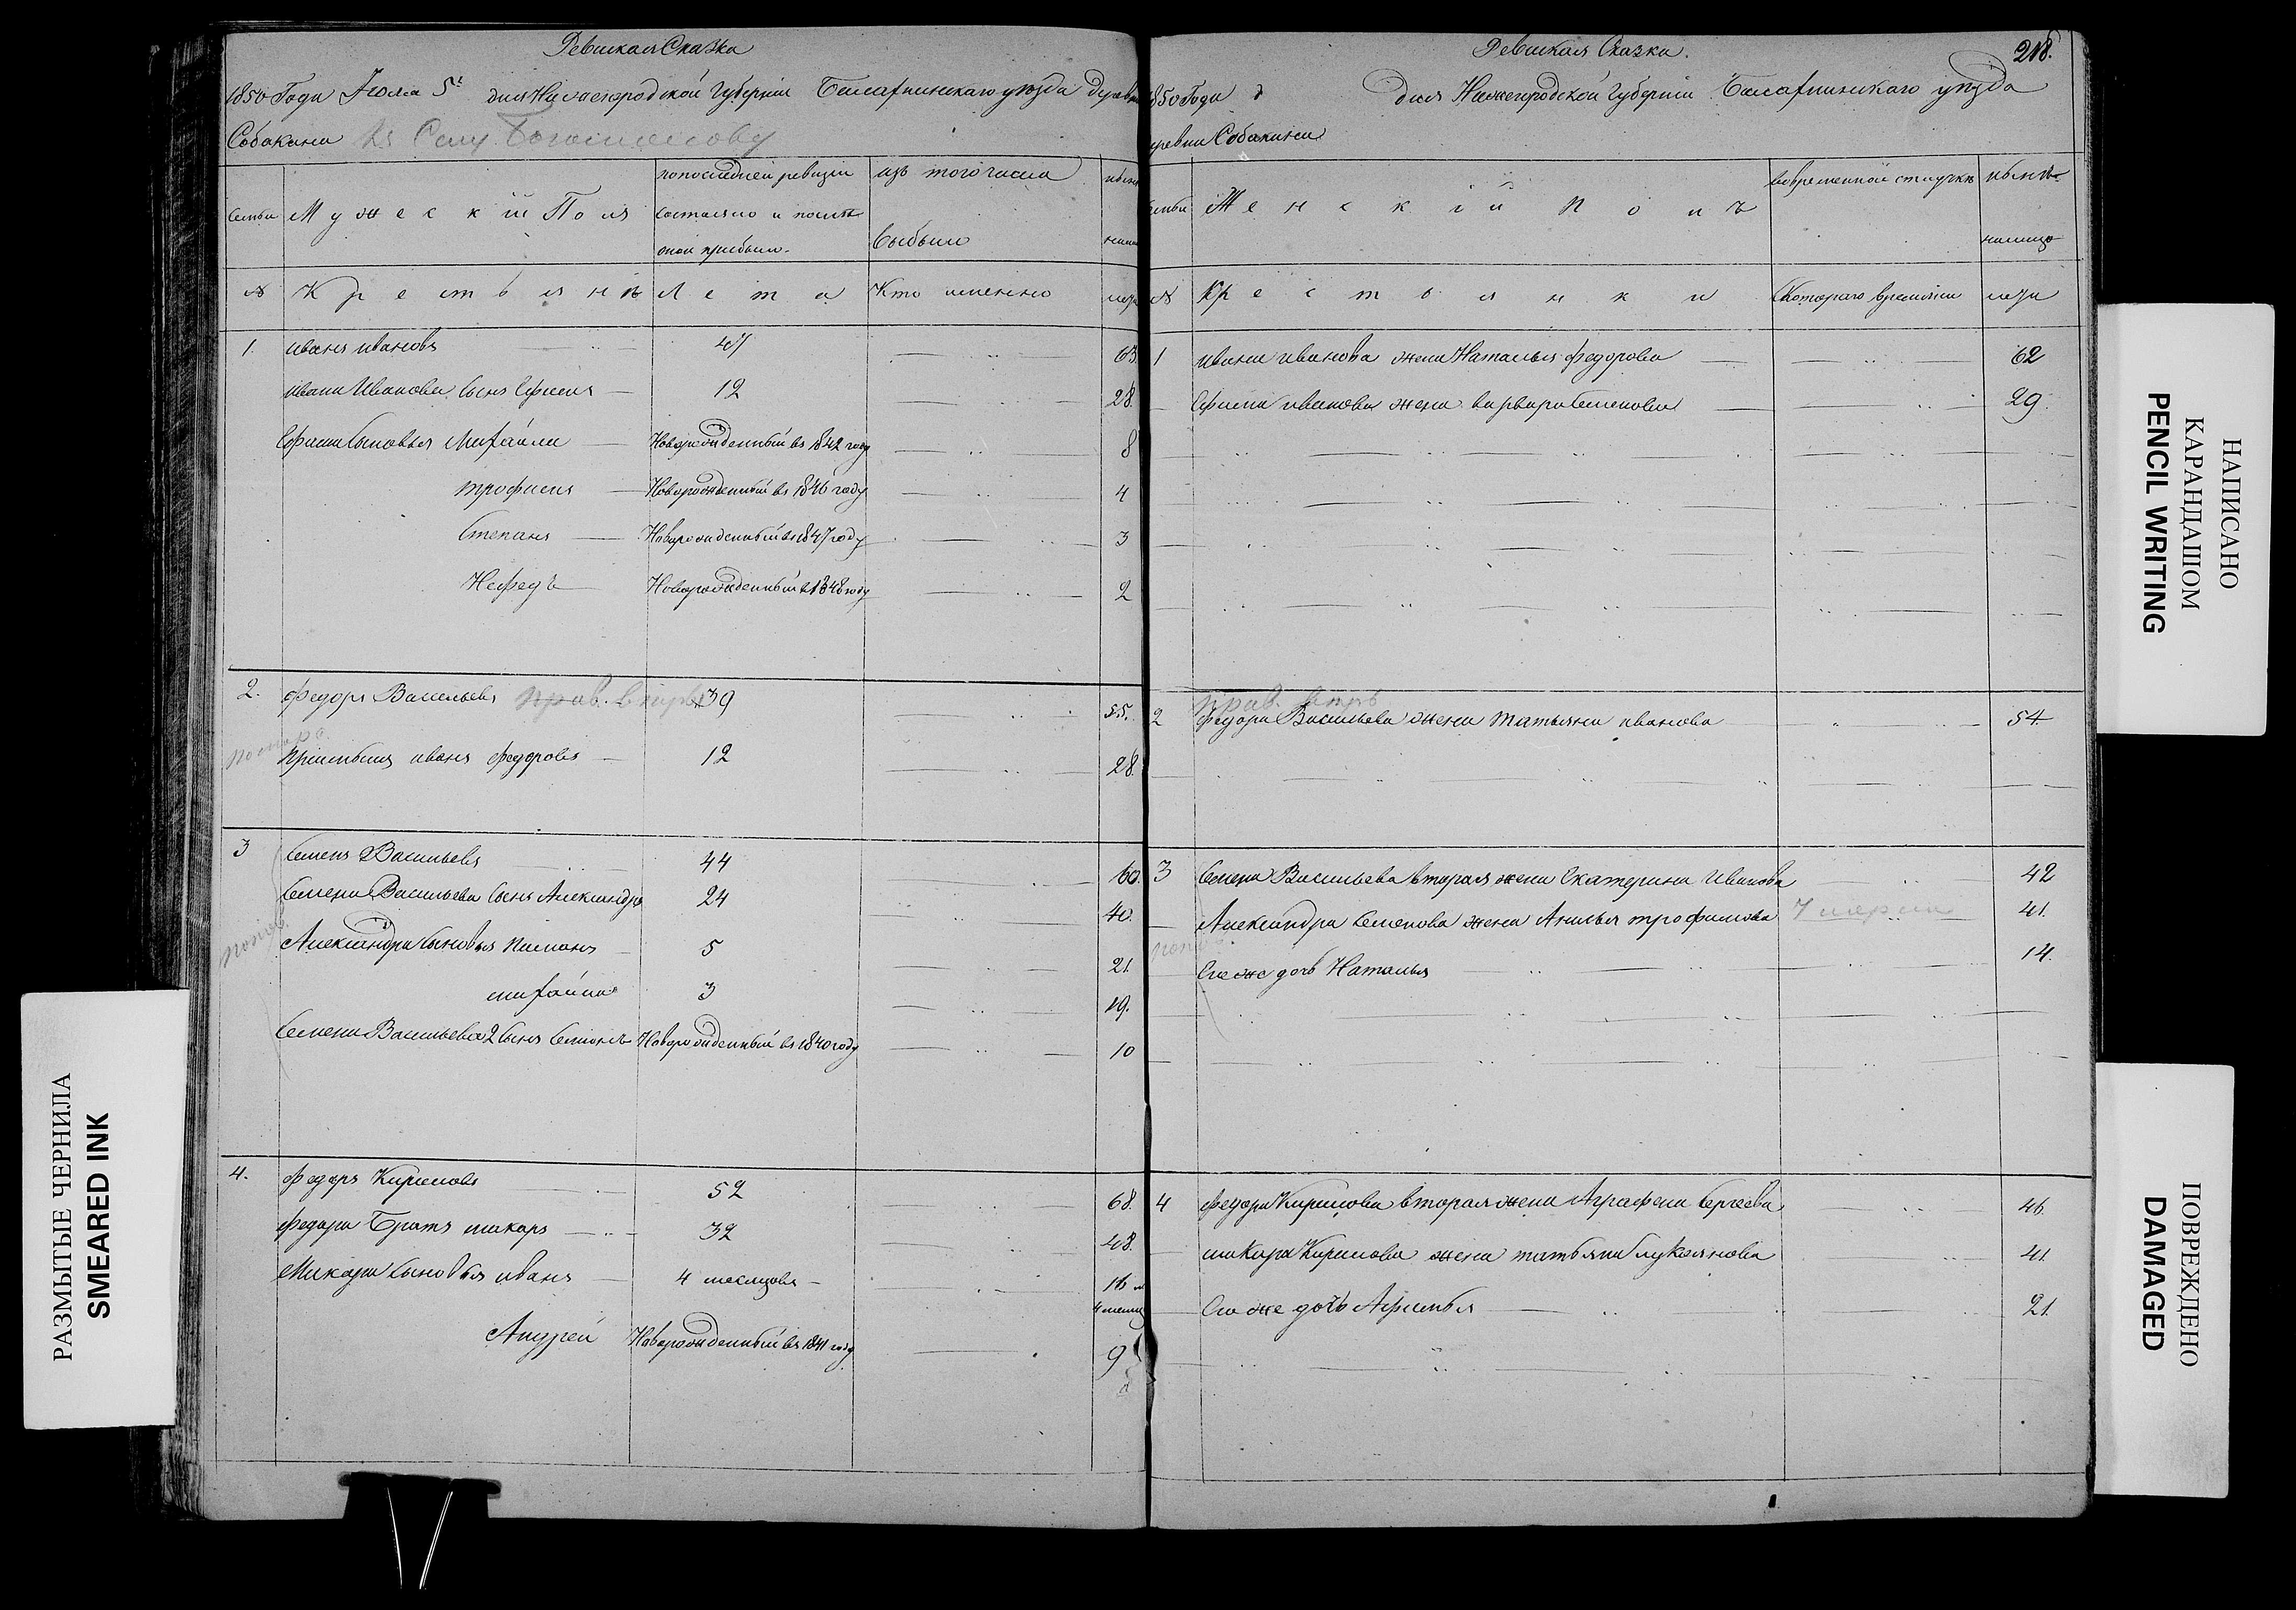 Ревиская Сказка
1850 Года Июля 5 дня Нижегородской Губернии Балахнинскаго уезда Дерев
Собакина къ Селу
Семьи Мужеский Полъ
по последней ревизіи состояло и после оной прибыло
изъ того числа выбыло
ныне налицо
№ Крестьянъ Лета Кто именно лета
1. иванъ ивановъ 47 63.
ивана Иванова сынъ Ефимъ 12 28.
Ефима сыновья Михайла Новорожденный въ 1842 году 8
трофимъ Новорожденный въ 1846 году 4
Степанъ Новорожденный въ 1847 году 3
Нефедъ Новорожденный въ 1848 году 2
2. Федоръ Васильевъ 39 55.
Приимышъ иванъ федоровъ 12 28.
3 Семенъ Васильевъ 44 60.
Семена Васильева сынъ Александръ 24 40.
Александра сыновья 5 21.
михайла 3 19.
Семена Васильева 2 сынъ Новорожденный въ 1840 году 10
4. Федоръ Кириловъ 52 68.
Федора Братъ макаръ 32 48.
Макара сыновья иванъ 4 месяцовъ 16
4
Андрей Новорожденный въ 1841 году 9
Ревиская Сказка.
218.
1850 Года дня Нижегородской Губернии Балахнинскаго уезда
деревни Собакина
Семьи Женскій полъ
во временной отлучке
ныне налицо
№ Крестьянки Котораго времени лета
1 ивана иванова жена Наталья федорова 62
Ефима иванова жена варвара семенова 29.
2 Федора Васильева жена татьяна иванова 54
3 Семена Васильева вторая жена Екатерина Иванова 42
Александра Семенова жена трофимова 41.
Ево же дочь Наталья 14.
4 федора Кирилова вторая жена Аграфена Сергеева 46.
макара Кирилова жена татьяна лукоянова 41.
Ево же дочь Афимья 21.
НАПИСАНО
КАРАНДАШОМ
PENCIL WRITING
ПОВРЕЖДЕНО
DAMAGED
РАЗМЫТЫЕ ЧЕРНИЛА
SMEARED INK